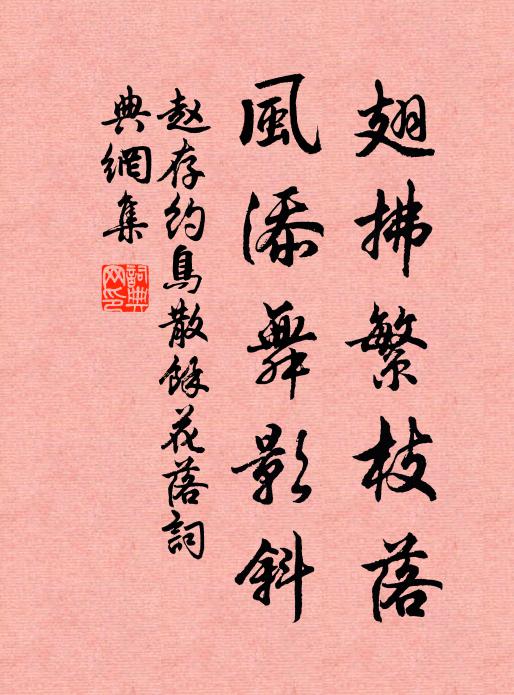 翅拂繁枝落
風添舞影斜
赵存约鳥散餘花落詞
典網集
詞典网印